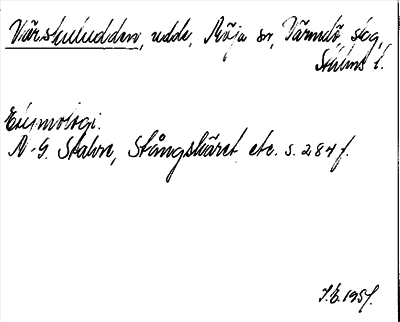 Värskuludden, udde, Möja sn, Värmdö skg,
Sthlms l.
Etymologi.
N.-G. Stahre, Stångskäret etc. s. 284 f.
S.E. 1957.